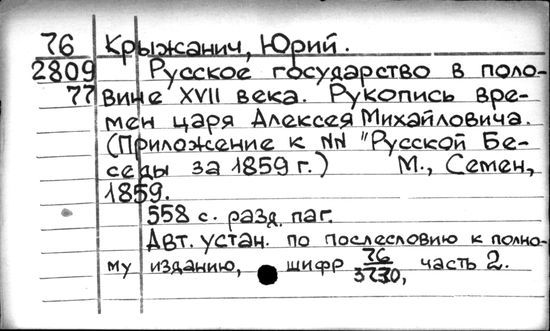 76 Крыжанич, Юрий.
2809 Русское государство в поло-
77 вине XVII века. Рукопись вре-
мен царя Алексея Михайловича.
(Приложение к NN "Русской Бе-
седы за 1859 г.) М., Семен,
1859.
558 с. разд. паг.
Авт. устан. по послесловию к полно-
му изданию, шифр 76/3730, часть 2.